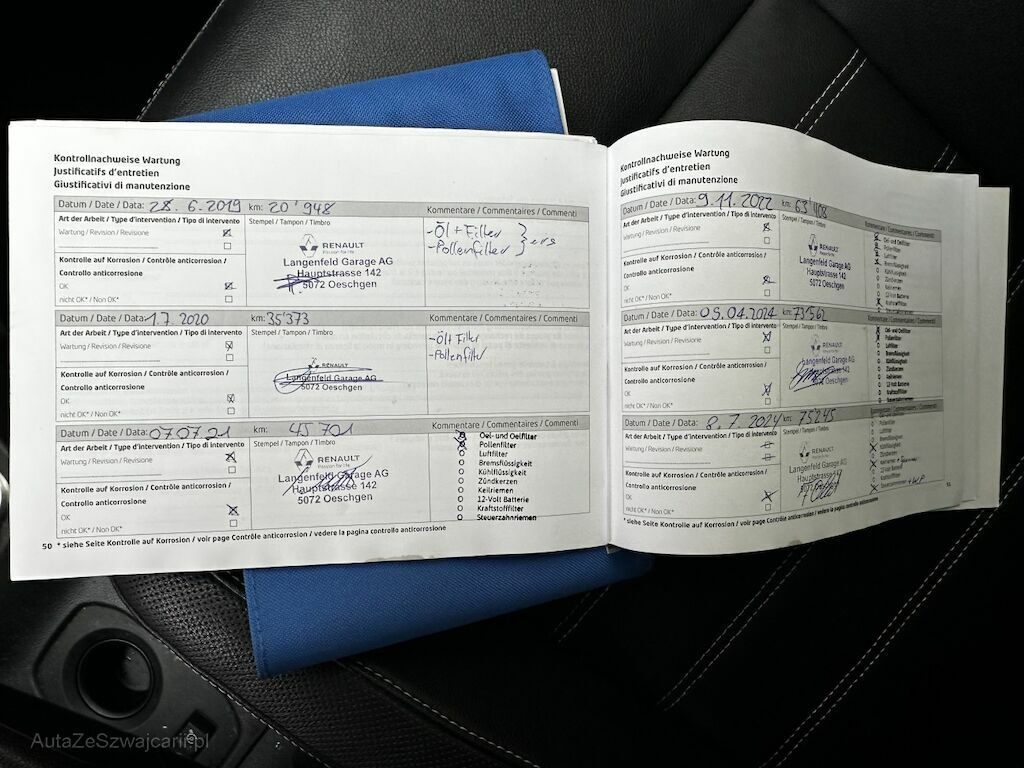 Kontrollnachweise Wartung
Justificatifs d'entretien
Giustificativi di manutenzione
Datum / Date / Data: 28.6.2019 km: 20'948 Kommentare / Commentaires / Commenti
Art der Arbeit / Type d'intervention / Tipo di intervento Stempel / Tampon / Timbro
Wartung / Revision / Revisione
Kontrolle auf Korrosion / Contrôle anticorrosion /
Controllo anticorrosione
OK
nicht OK* / Non OK*
RENAULT
Langenfeld Garage AG
Hauptstrasse 142
5072 Oeschgen
-Öl + Filter
-Pollenfilter
Datum / Date / Data: 1.7.2020 km: 35'373 Kommentare / Commentaires / Commenti
Art der Arbeit / Type d'intervention / Tipo di intervento Stempel / Tampon / Timbro
Wartung / Revision / Revisione
Kontrolle auf Korrosion / Contrôle anticorrosion /
Controllo anticorrosione
OK
nicht OK* / Non OK*
RENAULT
Langenfeld Garage AG
5072 Oeschgen
-Öl+ Filter
-Pollenfilter
Datum / Date / Data: 07.07.21 km: 45 701 Kommentare / Commentaires / Commenti
Art der Arbeit / Type d'intervention / Tipo di intervento Stempel / Tampon / Timbro
Wartung / Revision / Revisione
Kontrolle auf Korrosion / Contrôle anticorrosion /
Controllo anticorrosione
OK
nicht OK* / Non OK*
RENAULT
Passion for life
Langenfeld Garage AG
Hauptstrasse 142
5072 Oeschgen
Oel- und Oelfilter
Pollenfilter
Luftfilter
Bremsflüssigkeit
Kühlflüssigkeit
Zündkerzen
Keilriemen
12-Volt Batterie
Kraftstofffilter
Steuerzahnriemen
50 * siehe Seite Kontrolle auf Korrosion / voir page Contrôle anticorrosion / vedere la pagina controllo anticorrosione
Kontrollnachweise Wartung
Justificatifs d'entretien
Giustificativi di manutenzione
Datum / Date / Data: 9.11.2022 km: 63'408
Art der Arbeit / Type d'intervention / Tipo di intervento Stempel / Tampon / Timbro Kommentare / Commentaires / Commenti
Wartung / Revision / Revisione
Kontrolle auf Korrosion / Contrôle anticorrosion /
Controllo anticorrosione
OK
nicht OK* / Non OK*
RENAULT
Langenfeld Garage AG
Hauptstrasse 142
5072 Oeschgen
Oel- und Oelfilter
Pollenfilter
Luftfilter
Bremsflüssigkeit
Kühlflüssigkeit
Zündkerzen
Keilriemen
12-Volt Batterie
Kraftstofffilter
Datum / Date / Data: 05.04.2024 km: 73'562 Kommentare / Commentaires / Commenti
Art der Arbeit / Type d'intervention / Tipo di intervento Stempel / Tampon / Timbro
Wartung / Revision / Revisione
Kontrolle auf Korrosion / Contrôle anticorrosion /
Controllo anticorrosione
OK
nicht OK* / Non OK*
RENAULT
Langenfeld Garage AG
Oel- und Oelfilter
Pollenfilter
Luftfilter
Bremsflüssigkeit
Kühlflüssigkeit
Zündkerzen
Keilriemen
12 Volt Batterie
Kraftstofffilter
Steuerzahnriemen
Datum / Date / Data: 8.7.2024 km: 75245 Kommentare / Commentaires / Commenti
Art der Arbeit / Type d'intervention / Tipo di intervento Stempel / Tampon / Timbro
Wartung / Revision / Revisione
Kontrolle auf Korrosion / Contrôle anticorrosion /
Controllo anticorrosione
OK
nicht OK* / Non OK*
RENAULT
Langenfeld Garage AG
Hauptstrasse
5072 Oeschgen
Pollenfilter
Luftfilter
Bremsflüssigkeit
Kühlflüssigkeit
Zündkerzen
Keilriemen
12 Volt Batterie
Steuerzahnriemen + WP
* siehe Seite Kontrolle auf Korrosion / voir page Contrôle anticorrosion / vedere la pagina controllo anticorrosione 51
AutaZeSzwajcarii.pl